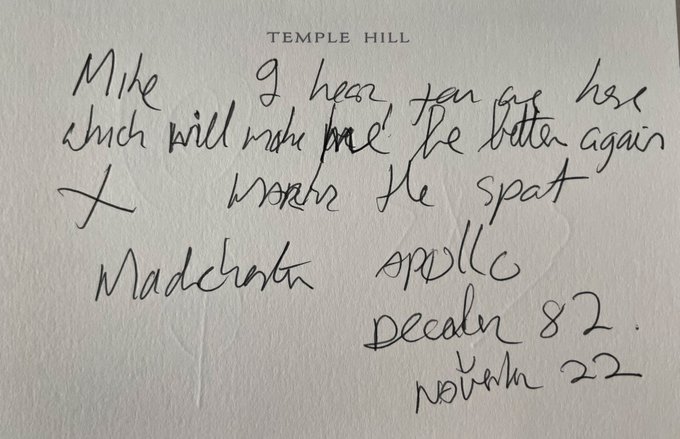 TEMPLE HILL
Mike I hear you are here
which will make me be better again
X marks the spot
Madchester Apollo
December 82.
November 22